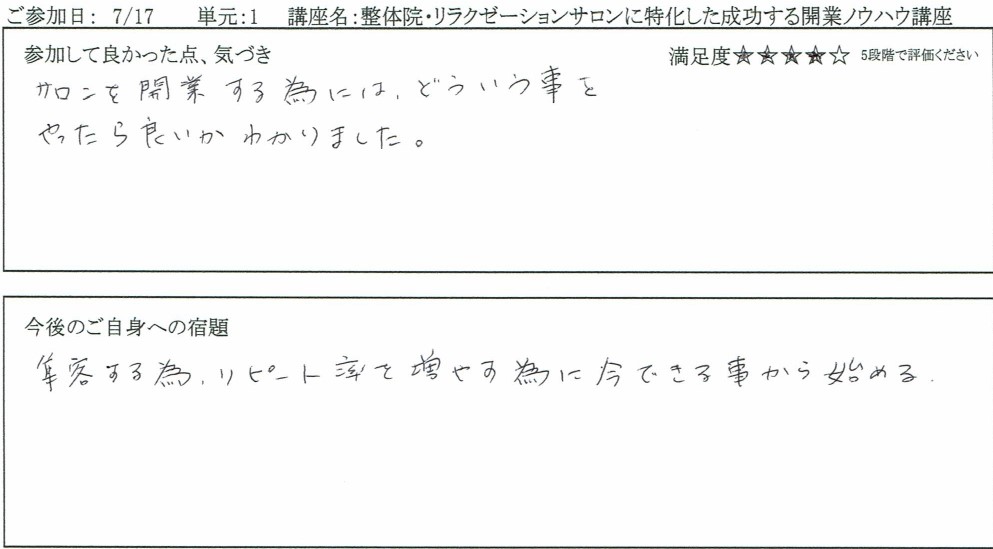 ご参加日: 7/17 単元:1 講座名:整体院・リラクゼーションサロンに特化した成功する開業ノウハウ講座
参加して良かった点、気づき 満足度★★★★☆ 5段階で評価ください
サロンを開業する為には、どういう事を
やったら良いかわかりました。
今後のご自身への宿題
集客する為、リピート率を増やす為に今できる事から始める.